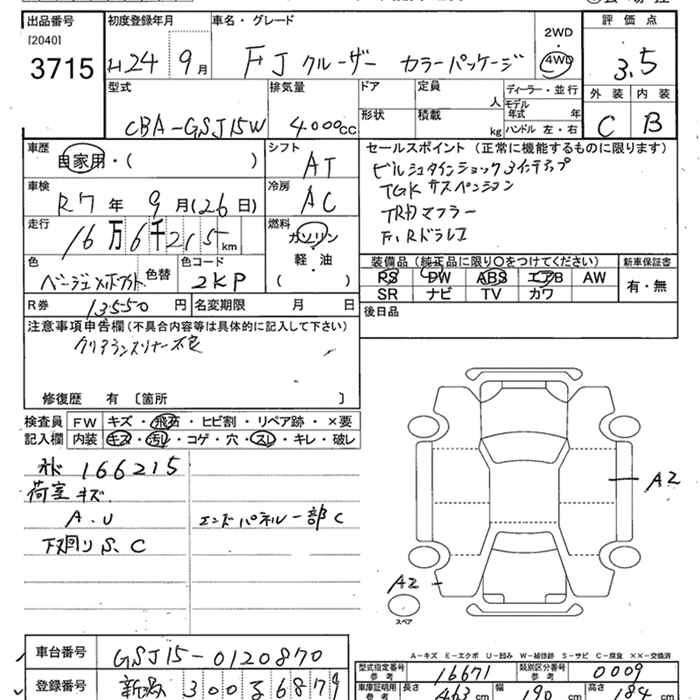 出品番号 初度登録年月 車名・グレード 評価点
[2040]
3715
H24 9月 FJ クルーザー カラーパッケージ 2WD 4WD 3.5
型式 排気量 ドア 定員 人 ディーラー・並行 外装 内装
形状 積載 kg モデル年式 年
ハンドル 左・右
CBA-GSJ15W 4000cc C B
車歴 シフト セールスポイント (正常に機能するものに限ります)
自家用・( ) AT
ビルシュタインショック3インチアップ
TGK サスペンション
TRDマフラー
F,Rドラレコ
車検 冷房
R7年 9月(26日) AC
走行 燃料
16万6千215km ガソリン
軽・油
( )
色 色替 色コード
ベージュ 2KP
装備品 (純正品に限り○をつけてください) 新車保証書
PS PW ABS エアB AW 有・無
SR ナビ TV カワ
R券 13550円 名変期限 月 日
後日品
注意事項申告欄 (不具合内容等は具体的に記入して下さい)
クリアランスソナー不良
修復歴 有 〔箇所 〕
検査員記入欄
FW キズ・飛石・ヒビ割・リペア跡・×要
内装 キズ・汚れ・コゲ・穴・スレ・キレ・破レ
166215
荷室キズ
A.U エンドパネル一部C
下廻りS.C
A2
A2
スペア
A-キズ E-エクボ U-凹み W-補修跡 S-サビ C-腐食 ××-交換済
車台番号 GSJ15-0120870
型式指定番号 参考 16671 類別区分番号 参考 0009
登録番号 新潟 300 6879
車庫証明用 参考 長さ 463cm 幅 190cm 高さ 184cm